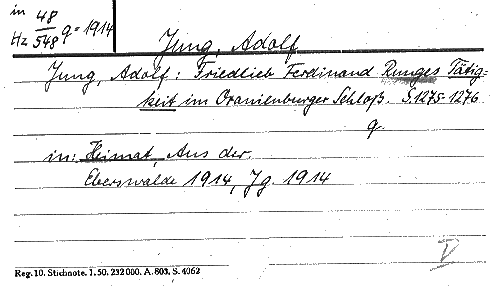 in 48
Hz 548 q = 1914
Jung, Adolf
Jung, Adolf: Friedlieb Ferdinand Runges Tätig=
keit im Oranienburger Schloß. S. 1275-1276
q.
in: Heimat, Aus der.
Eberswalde 1914, Jg. 1914
V
Reg. 10. Stichnote. 1. 50. 232 000. A. 803. S. 4062